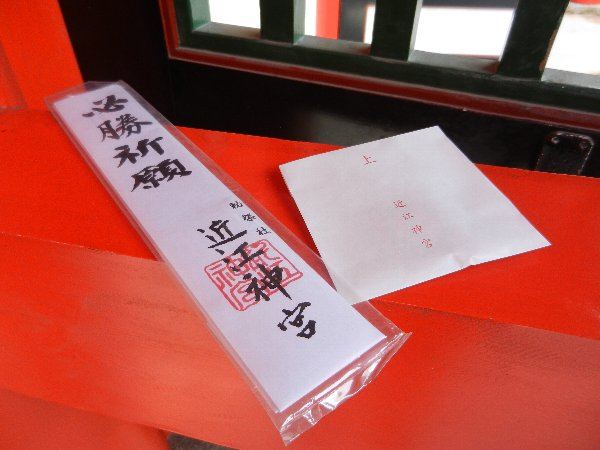 必勝祈願
勅祭社
近江神宮
上
近江神宮